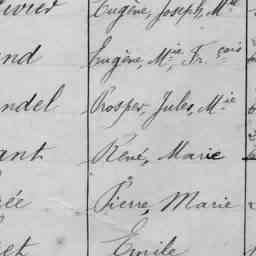 ivier Eugène, Joseph, Mie
and Eugène, Mie, Fr. çois
ndel Prosper, Jules, Mie
ant René, Marie
ée Pierre, Marie
et Emile